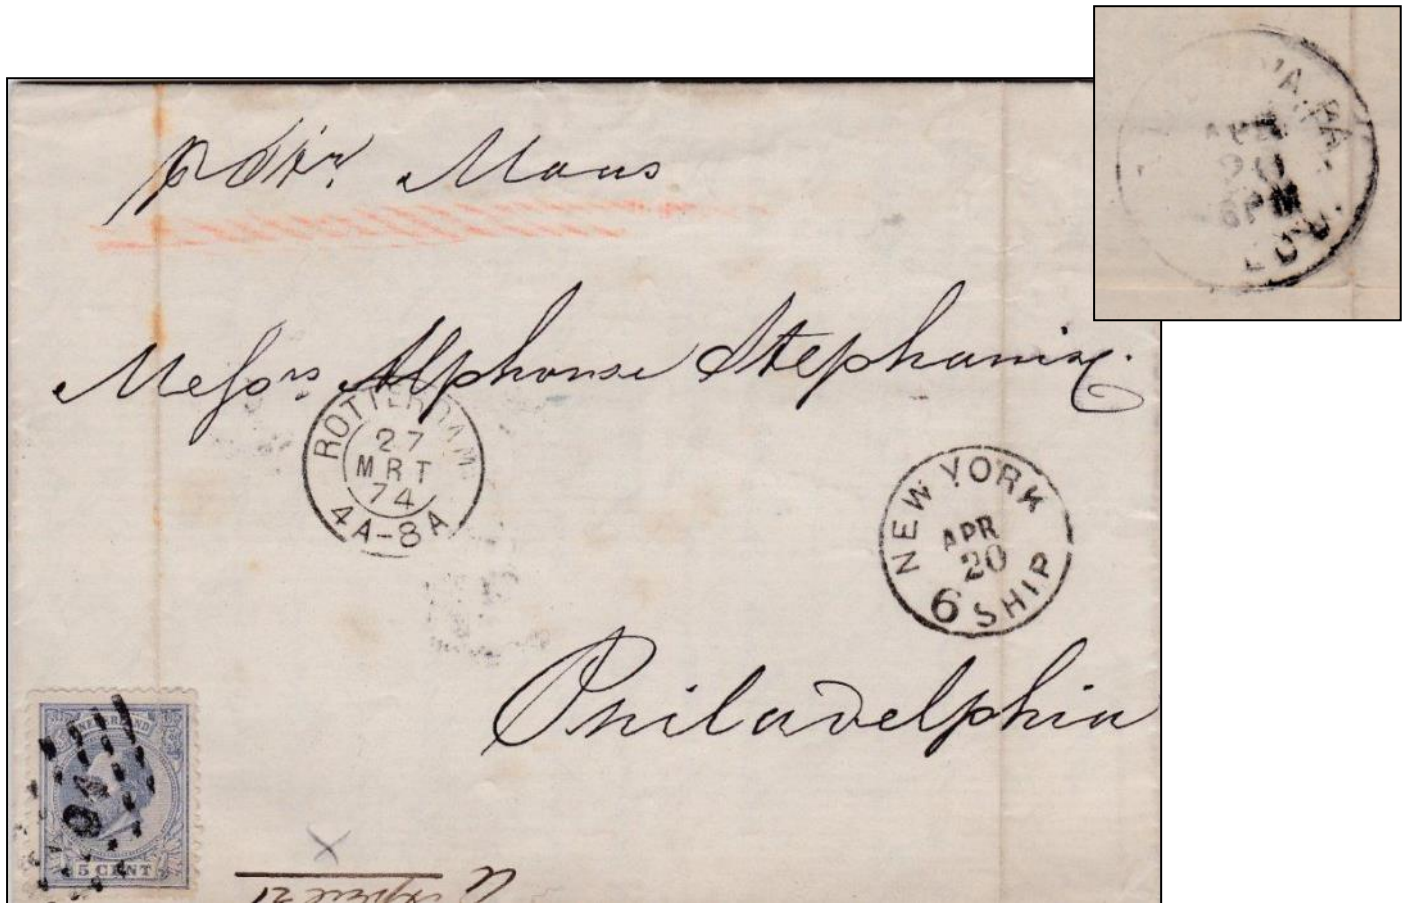 p Str Maas
Messrs Alphonse Stephani &c.
ROTTERDAM
27
MRT
74
4A-8A
NEW YORK
APR
20
6 SHIP
Philadelphia
NEDERLAND
5 CENT
April 21
'A. PA.
APR
20
6PM